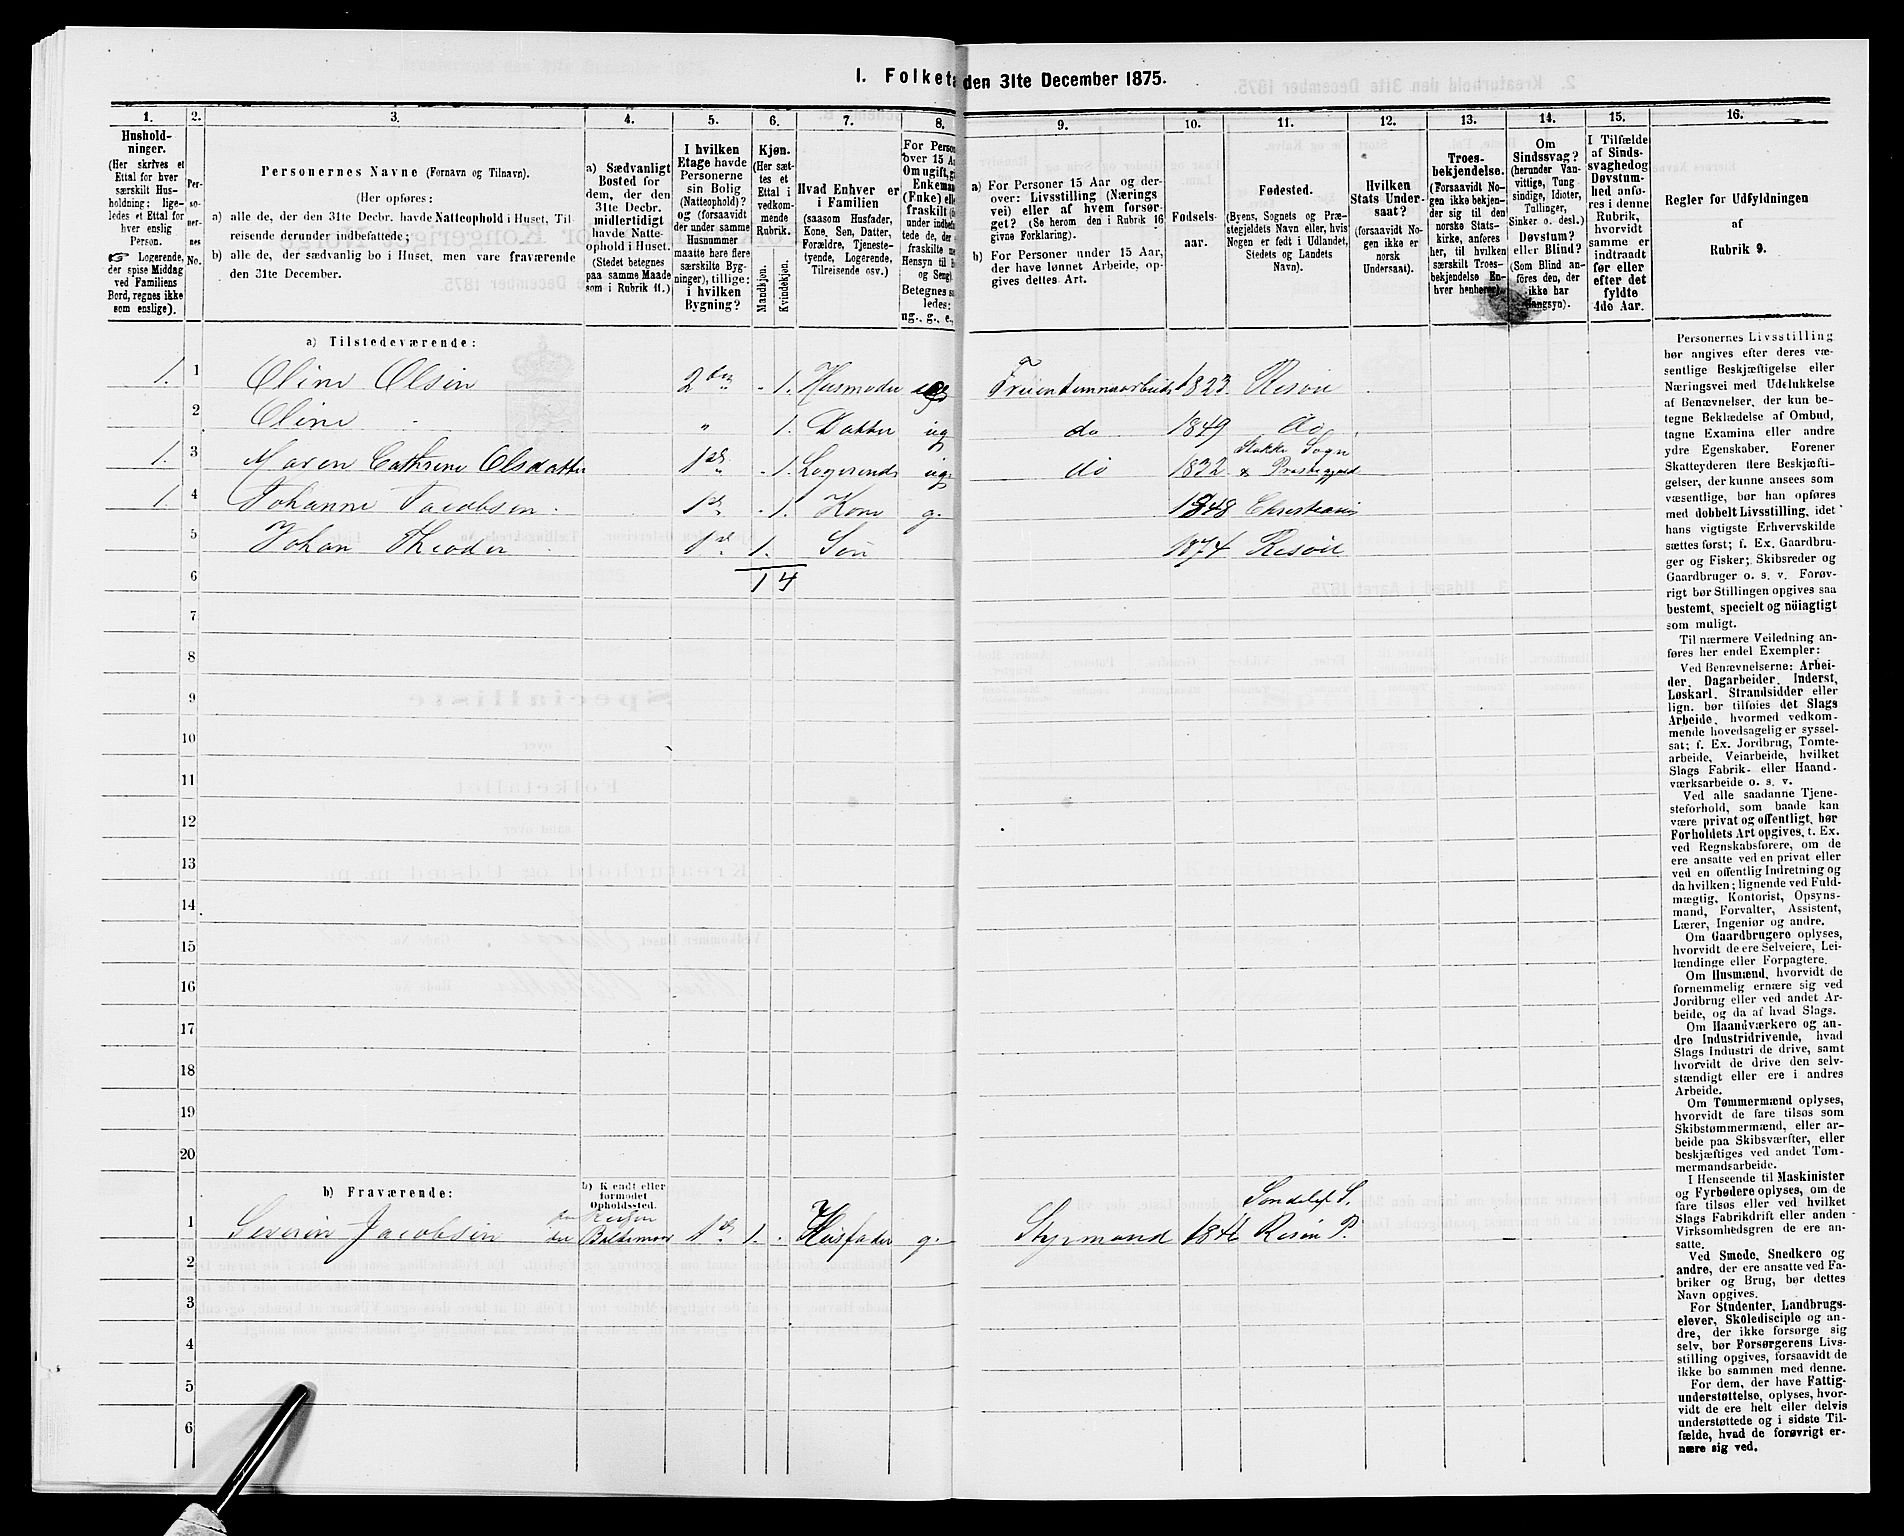 I. Folketa den 31te December 1875.
1.
2.
3.
4.
5.
6.
7.
8.
9.
10.
11.
12.
13.
14.
15.
16.
Hushold-
ninger.
(Her skrives et
Ettal for hver
særskilt Hus-
holdning; lige-
ledes et Ettal for
hver enslig
Person.
☞ Logerende,
der spise Middag
ved Familiens
Bord, regnes ikke
som enslige).
Per-
so-
ner-
nes
No.
Personernes Navne (Fornavn og Tilnavn).
(Her opføres:
a) alle de, der den 31te Decbr. havde Natteophold i Huset, Til-
reisende derunder indbefattede;
b) alle de, der sædvanlig bo i Huset, men vare fraværende
den 31te December.
a) Sædvanligt
Bosted for
dem, der den
31te Decbr.
midlertidigt
havde Natte-
ophold i Huset.
(Stedet betegnes
paa samme Maade
som i Rubrik 11.)
I hvilken
Etage havde
Personerne
sin Bolig
(Natteophold)?
og (forsaavidt
der under samme
Husnummer
maatte høre flere
særskilte Byg-
ninger), tillige:
i hvilken
Bygning?
Kjøn.
(Her sæt-
tes et
Ettal i
vedkom-
mende
Rubrik.
Mandkjøn.
Kvindekjøn.
Hvad Enhver er
i Familien
(saasom Husfader,
Kone, Søn, Datter,
Forældre, Tjeneste-
tyende, Logerende,
Tilreisende osv.)
For Person
over 15 Aa
Om ugift, gi
Enkeman
(Enke) elle
fraskilt (de
under indbefa
tede de, der e
fraskilte m
Hensyn til B
og Seng)
Betegnes sa
ledes:
ug., g., e.,
a) For Personer 15 Aar og der-
over: Livsstilling (Nærings
vei) eller af hvem forsør-
get? (Se herom den i Rubrik 16
givne Forklaring).
b) For Personer under 15 Aar,
der have lønnet Arbeide, op-
gives dettes Art.
Fødsels-
aar.
Fødested.
(Byens, Sognets og Præ-
stegjeldets Navn eller, hvis
Nogen er født i Udlandet,
Stedets og Landets
Navn).
Hvilken
Stats Under-
saat?
(forsaavidt No-
gen ikke er
norsk
Undersaat).
Troes-
bekjendelse.
(Forsaavidt No-
gen ikke bekjen-
der sig til den
norske Stats-
kirke, anføres
her, til hvilken
særskilt Troes-
bekjendelse En-
hver henhører).
Om
Sindssvag?
(herunder Van-
vittige, Tung-
sindige, Idioter,
Tullinger,
Sinker o. desl.)
Døvstum?
eller Blind?
(Som Blind an-
føres den, der
ikke har
Gangsyn).
I Tilfælde
af Sinds-
svaghed og
Døvstum-
hed anfø-
res i denne
Rubrik,
hvorvidt
samme er
indtraadt
før eller
efter det
fyldte
4de Aar.
Regler for Udfyldningen
af
Rubrik 9.
a) Tilstedeværende:
1. 1 Oline Olsen 2den - 1. Husmoder Frientømmerarbeide 1823. Risør
2 Oline " 1. Datter ug do 1849 do
1. 3 Maren Cathrine Olsdatter 1ste - 1. Logerende ug. do 1832 Stokke Sogn & Præstegjeld
1. 4 Johanne Jacobsen 1ste - 1. Kone g. 1848 Christiania
5 Johan Theodor 1ste 1. Søn 1874 Risør
6 1 4
7
8
9
10
11
12
13
14
15
16
17
18
19
20
b) Fraværende:
b) Kjendt eller
formodet
Opholdssted.
1 Severin Jacobsen Reisen Baltimore 1ste 1. - Husfader g. Styrmand 1846 Søndeled S. Risør P.
2
3
4
5
6
Personernes Livsstilling
bør angives efter deres væ-
sentlige Beskjæftigelse eller
Næringsvei med Udelukkelse
af Benævnelser, der kun be-
tegne Beklædelse af Ombud,
tagne Examina eller andre
ydre Egenskaber. Forener
Skatteyderen flere Beskjæfti-
gelser, der kunne ansees som
væsentlige, bør han opføres
med dobbelt Livsstilling, idet
hans vigtigste Erhvervskilde
sættes først; f. Ex. Gaardbru-
ger og Fisker; Skibsreder og
Gaardbruger o. s. v. Forøv-
rigt bør Stillingen opgives saa
bestemt, specielt og nöiagtigt
som muligt.
Til nærmere Veiledning an-
føres her endel Exempler:
Ved Benævnelserne: Arbei-
der, Dagarbeider, Inderst,
Løskarl, Strandsidder eller
lign. bør tilføies det Slags
Arbeide, hvormed vedkom-
mende hovedsagelig er syssel-
sat; f. Ex. Jordbrug, Tomte-
arbeide, Veiarbeide, hvilket
Slags Fabrik- eller Haand-
værksarbeide o. s. v.
Ved alle saadanne Tjene-
steforhold, som baade kan
være privat og offentligt, bør
Forholdets Art opgives, t. Ex.
ved Regnskabsførere, om de
ere ansatte ved en privat eller
ved en offentlig Indretning og
da hvilken; lignende ved Fuld-
mægtig, Kontorist, Opsyns-
mand, Forvalter, Assistent,
Lærer, Ingeniør og andre.
Om Gaardbrugere oplyses,
hvorvidt de ere Selveiere, Lei-
lændinge eller Forpagtere.
Om Husmænd, hvorvidt de
fornemmelig ernære sig ved
Jordbrug eller ved andet Ar-
beide, og da af hvad Slags.
Om Haandværkere og an-
dre Industridrivende, hvad
Slags Industri de drive, samt
hvorvidt de drive den selv-
stændigt eller ere i andres
Arbeide.
Om Tømmermænd oplyses,
hvorvidt de fare tilsøs som
Skibstømmermænd, eller ar-
beide paa Skibsværfter, eller
beskjæftiges ved andet Tøm-
mermandsarbeide.
I Henseende til Maskinister
og Fyrbødere oplyses, om de
fare tilsøs eller ved hvilket
Slags Fabrikdrift eller anden
Virksomhedsgren de ere an-
satte.
Ved Smede, Snedkere og
andre, der ere ansatte ved Fa-
briker og Brug, bør dettes
Navn opgives.
For Studenter, Landbrugs-
elever, Skoledisciple og an-
dre, der ikke forsørge sig
selv, bør Forsørgerens Livs-
stilling opgives, forsaavidt de
ikke bo sammen med denne.
For dem, der have Fattig-
understøttelse, oplyses, hvor-
vidt de ere helt eller delvis
understøttede og i sidste Til-
fælde, hvad de forøvrigt er-
nære sig ved.